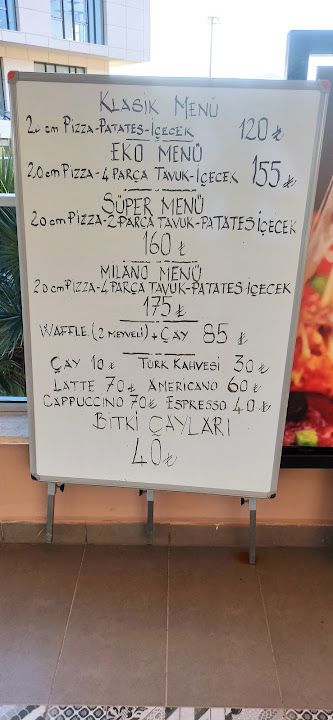 KLASİK MENÜ
20 cm PİZZA-PATATES-İÇECEK 120 ₺
EKO MENÜ
20cm PİZZA-4 PARÇA TAVUK-İÇECEK 155 ₺
SÜPER MENÜ
20cm PİZZA-2 PARÇA TAVUK-PATATES İÇECEK
160 ₺
MİLANO MENÜ
20cm PİZZA-4 PARÇA TAVUK-PATATES-İÇECEK
175 ₺
WAFFLE (2 MEYVELİ)+ÇAY 85 ₺
ÇAY 10 ₺ TÜRK KAHVESİ 30 ₺
LATTE 70 ₺ AMERICANO 60 ₺
CAPPUCCINO 70 ₺ ESPRESSO 40 ₺
BİTKİ ÇAYLARI
40 ₺